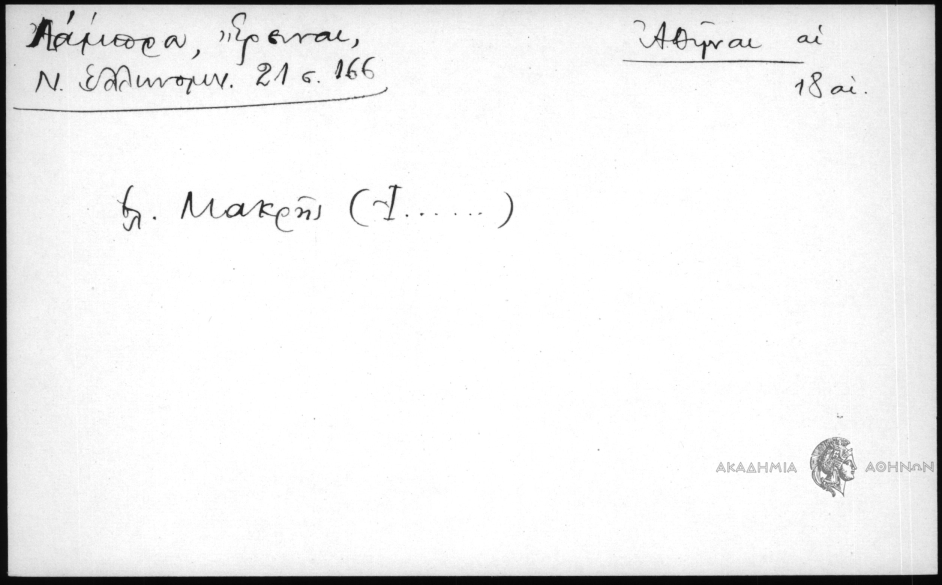 Λάμπρα, Ἔρευναι,
Ν. Ἑλληνομν. 21 σ. 166
Ἀθῆναι αἱ
18 αἰ.
βλ. Μακρῆς (Ἰ......)
ΑΚΑΔΗΜΙΑ ΑΘΗΝΩΝ